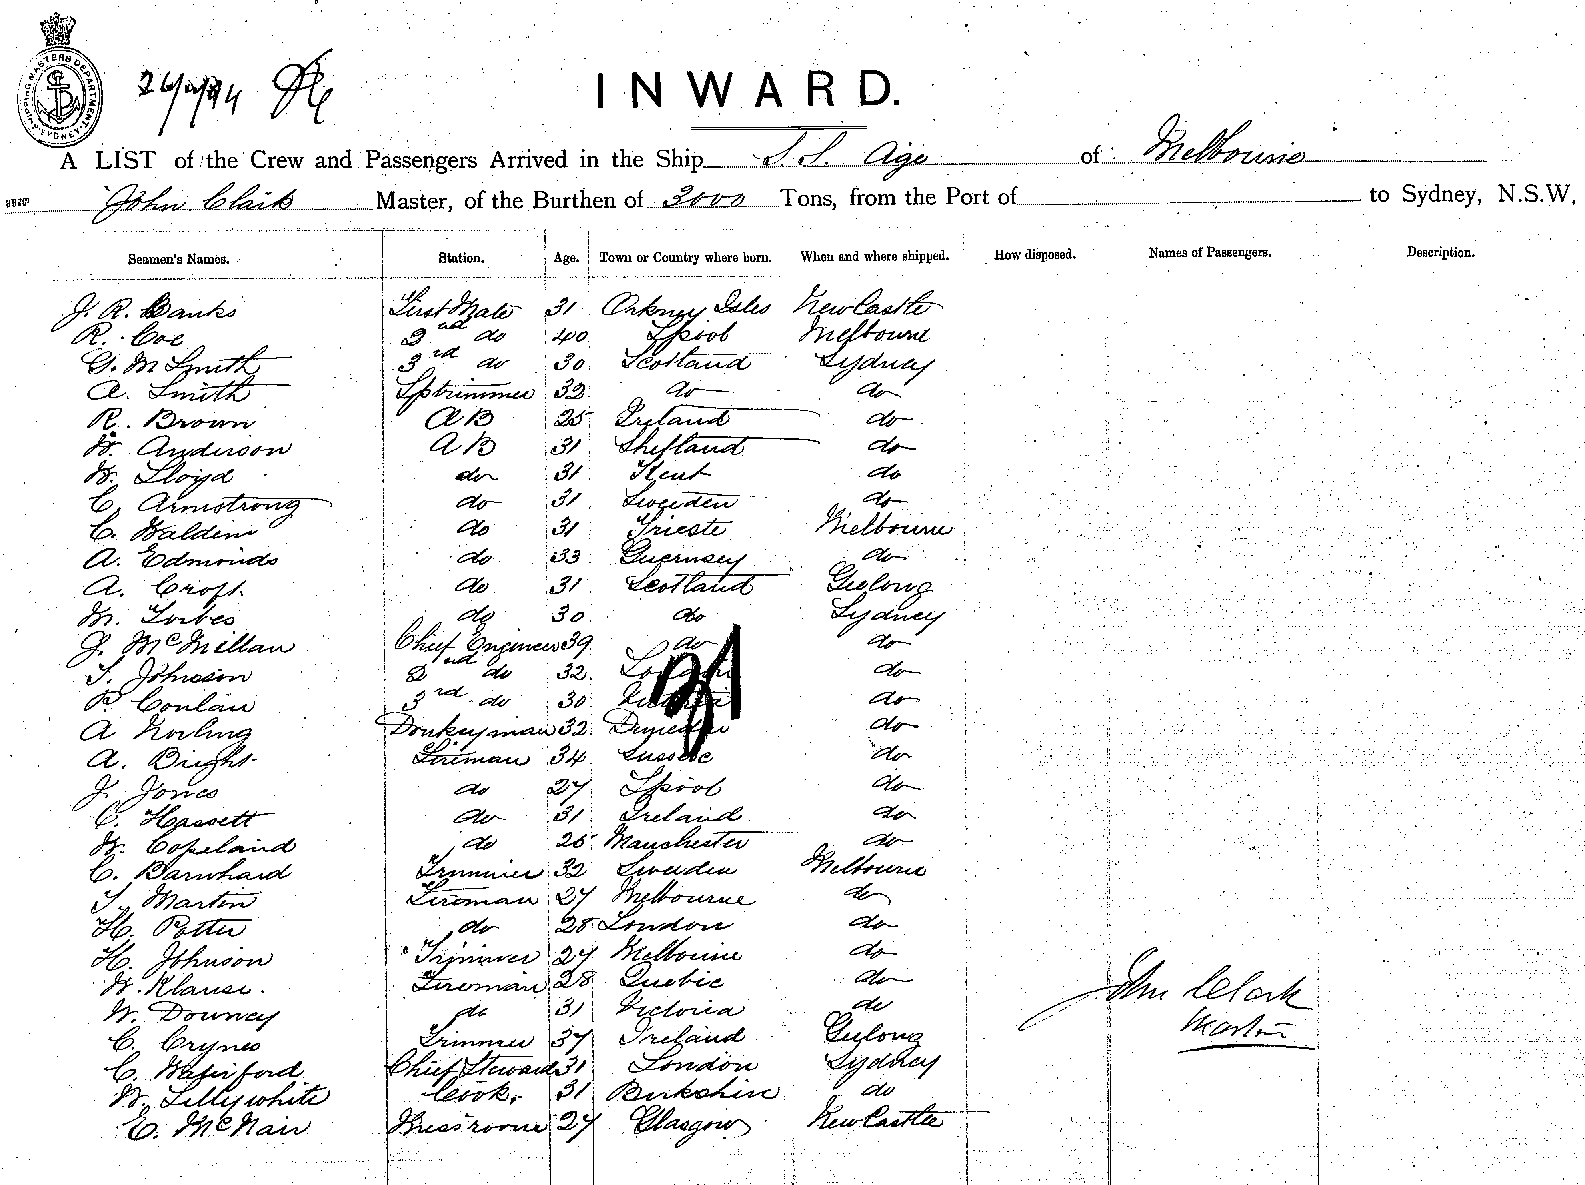 SHIPPING MASTERS DEPARTMENT SYDNEY
INWARD.
A LIST of the Crew and Passengers Arrived in the Ship S.S. Age of Melbourne
John Clark Master, of the Burthen of 3000 Tons, from the Port of to Sydney, N.S.W.
Seamen's Names. Station. Age. Town or Country where born. When and where shipped. How disposed. Names of Passengers. Description.
J. R. Banks First Mate 31 Orkney Isles NewCastle
R. Coe 2nd do 40 Lpool Melbourne
G. M Smith 3rd do 30 Scotland Sydney
A. Smith Lptrimmer 32 do do
R. Brown AB 25 Ireland do
W. Anderson AB 31 Shetland do
W. Lloyd do 31 Kent do
C. Armstrong do 31 Sweeden do
C. Baldini do 31 Trieste Melbourne
A. Edmonds do 33 Guernsey do
A. Croft do 31 Scotland Geelong
M. Forbes do 30 do Sydney
J. McMillan Chief Engineer 39 do do
T. Johnson 2nd do 32 do
P. Conlan 3rd do 30 do
A Donkeyman 32 do
A. Bright Fireman 34 Sussex do
J. Jones do 27 Lpool do
C. Hassett do 31 Ireland do
W. Copeland do 26 Manchester do
C. Barnhard Trimmer 32 Sweeden Melbourne
T. Martin Fireman 27 Melbourne do
H. Potter do 28 London do
H. Johnson Trimmer 27 Melbourne do
W. Klause. Fireman 28 Quebec do
W. Downey do 31 Victoria do
C. Crynes Trimmer 37 Ireland Geelong
C. Chief Steward 31 London Sydney
W. Lillywhite Cook. 31 Berkshire do
E. McNair Messroom 27 Glasgow NewCastle
John Clark
Master